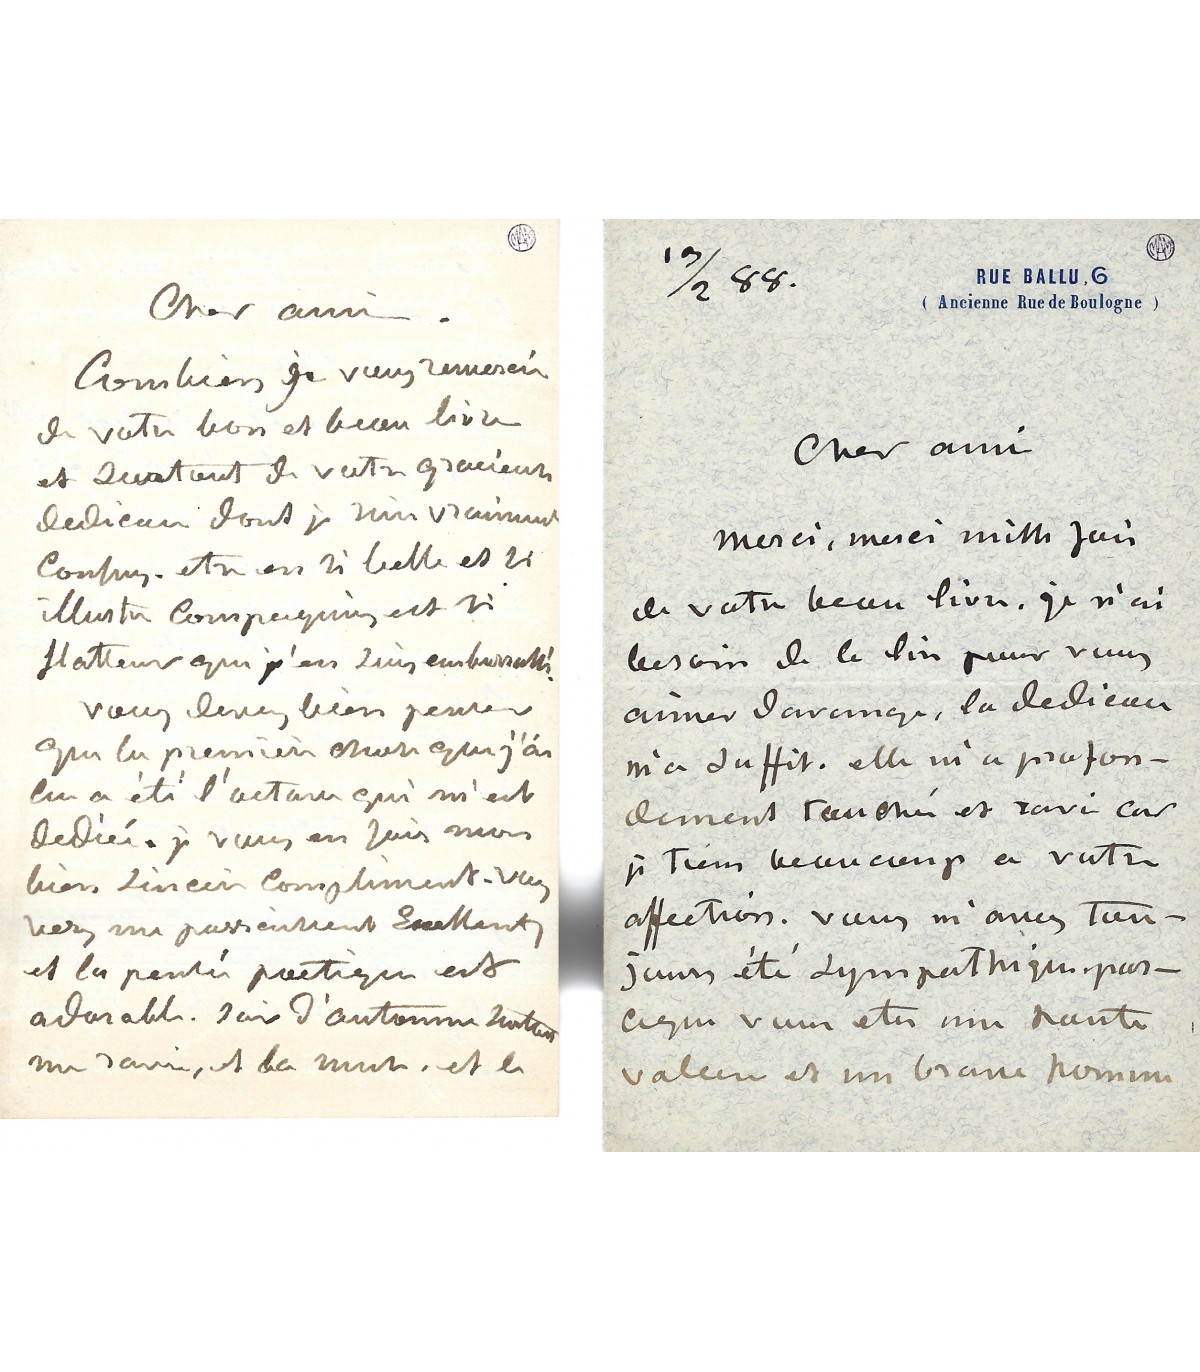 Cher ami.
Combien je vous remercie
de votre bon et beau livre
et surtout de votre gracieuse
dedicace dont je suis vraiment
confus. etre en si belle et si
illustre compagnie est si
flatteur que j'en suis embarrassé.
Vous devez bien penser
que la première chose que j'ai
lu a été l'octave qui m'est
dédiée. je vous en fais mon
bien sincère compliment. vos
vers me paraissent Excellents
et la pensée poetique est
adorable. Soir d'automne
me ravie, et la muse. et le
19/2 88.
RUE BALLU, 6
( Ancienne Rue de Boulogne )
Cher ami
merci, merci mille fois
de votre beau livre. je n'ai
besoin de le lire pour vous
aimer davantage, la dedicace
m'a suffit. elle m'a profon-
dement touché et ravi car
je tiens beaucoup a votre
affection. vous m'avez tou-
jours été sympathique. par-
ceque vous etes une haute
valeur et un brave homme